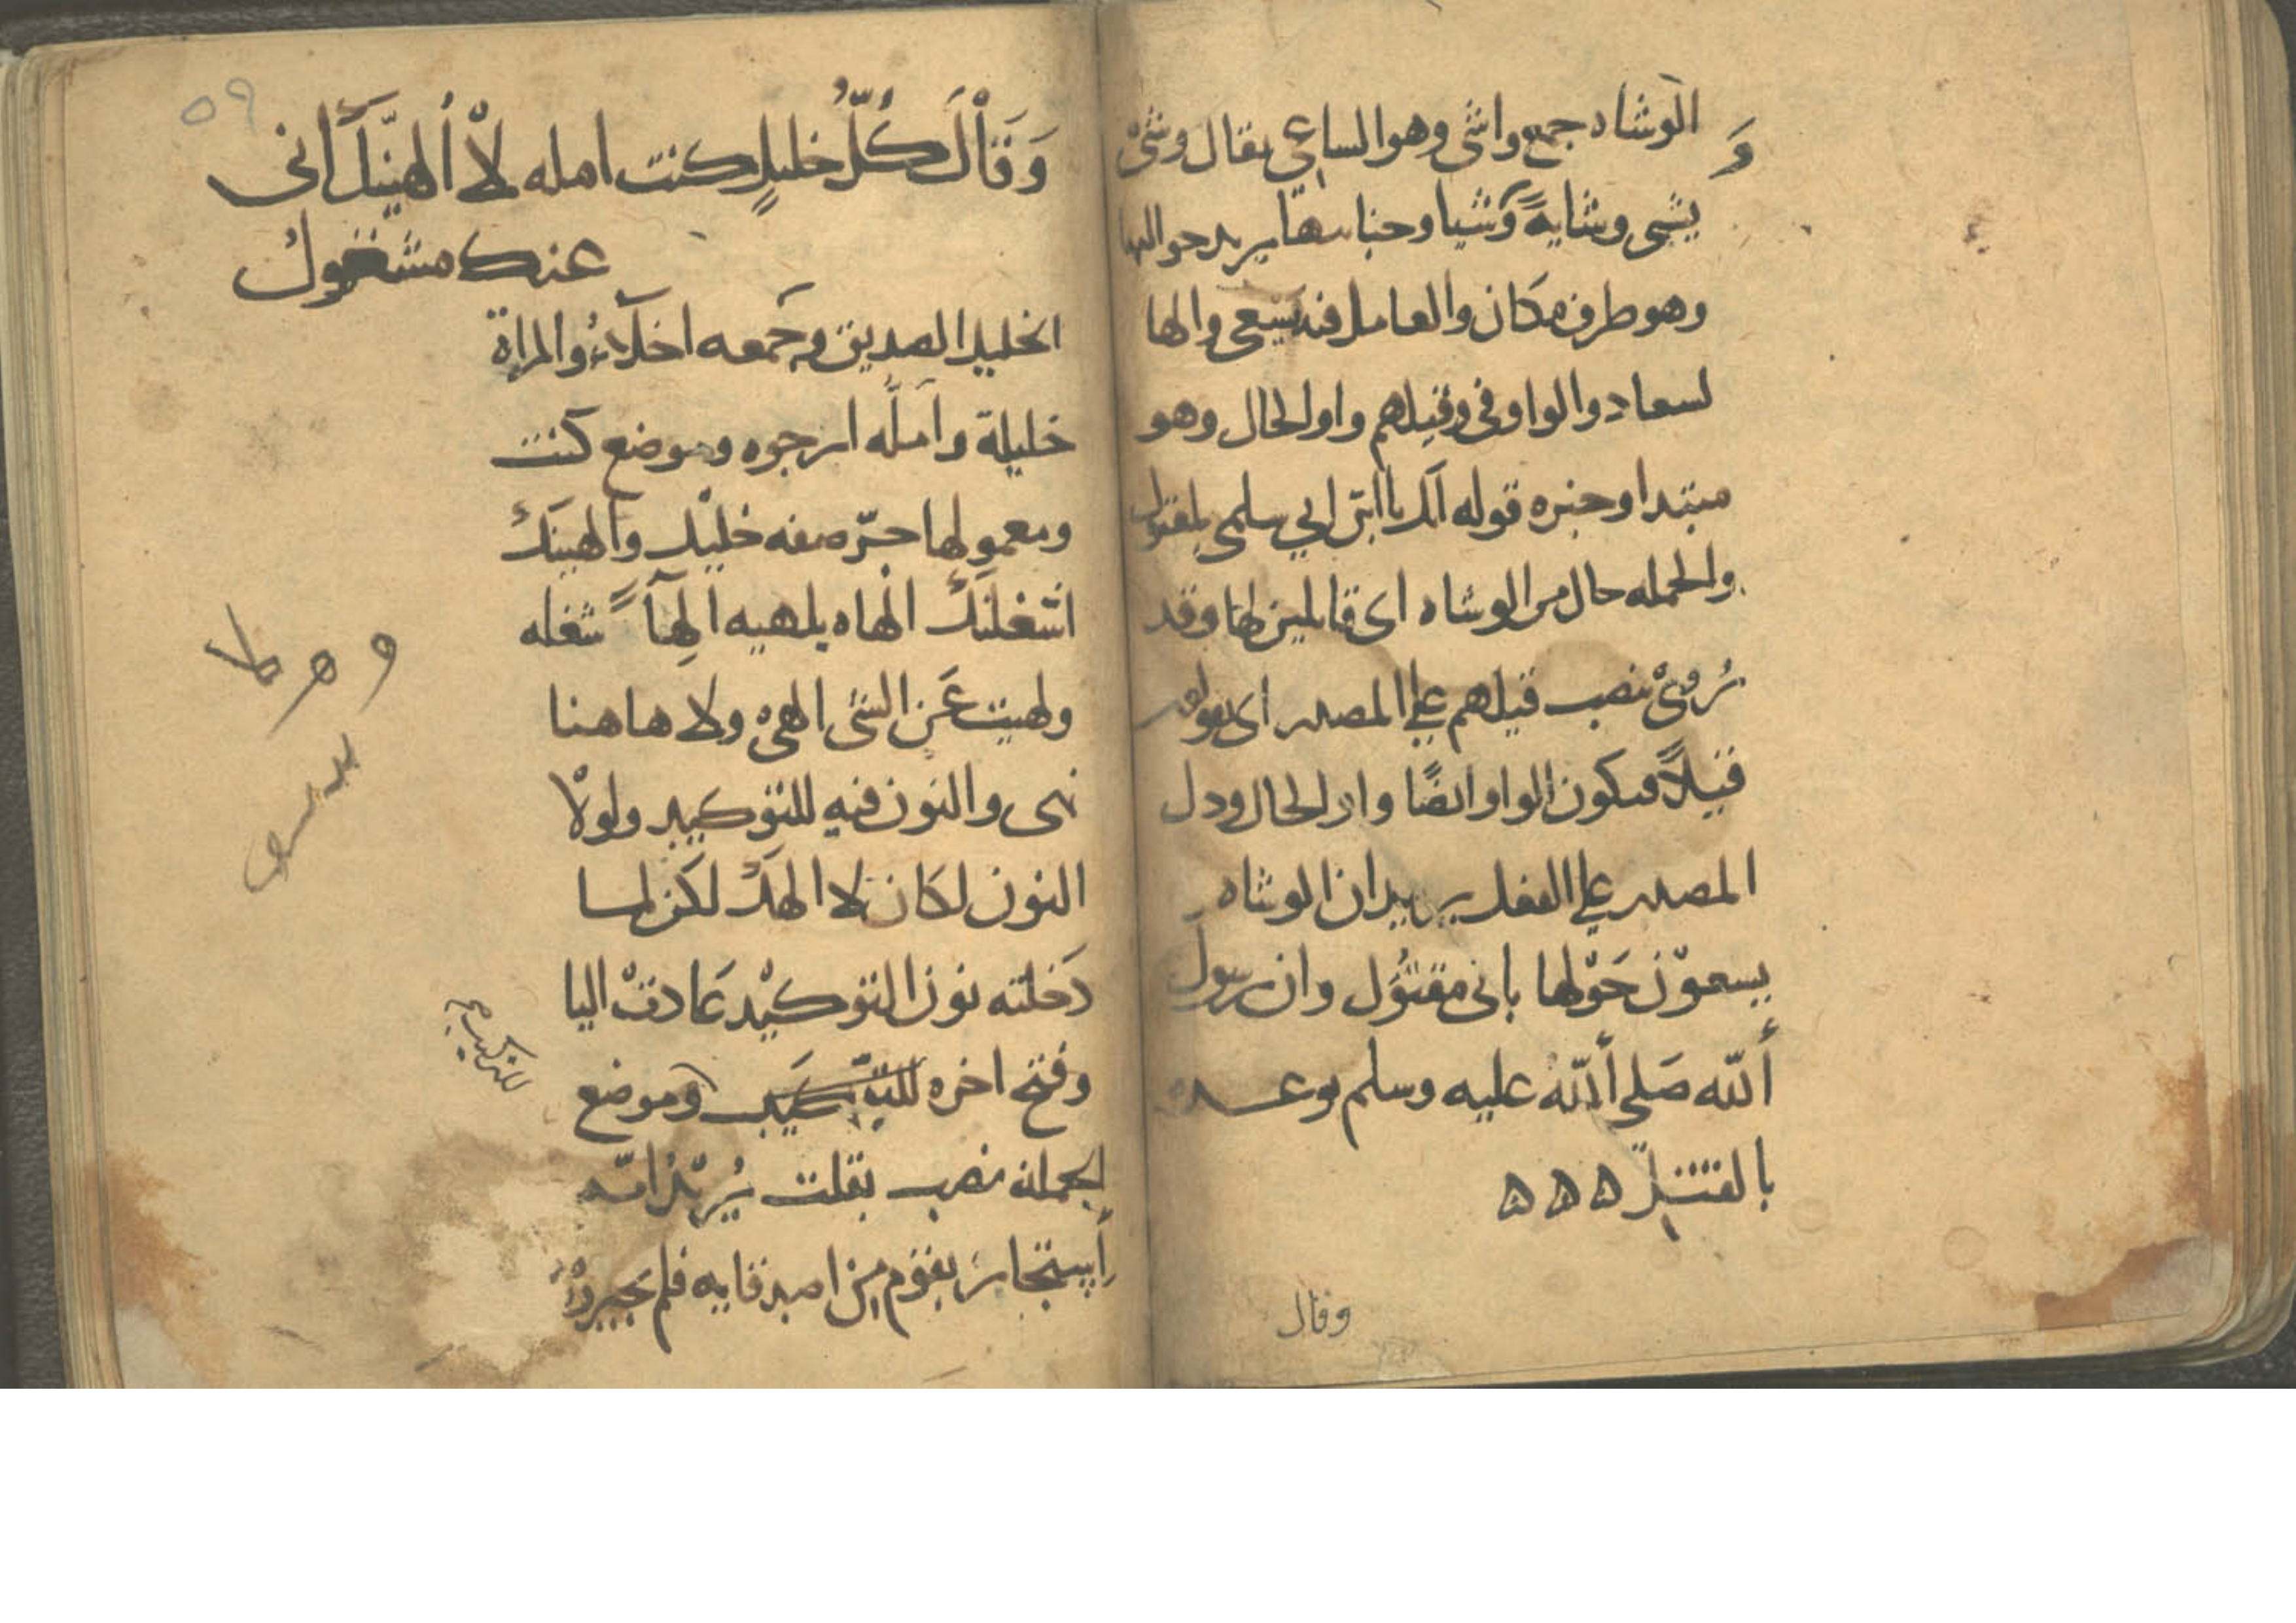 الوشاه جمع واشى وهو الساعي يقال وشىْ
يشى وشايةً وَشيا وجنابيها يريد حواليها
وهو ظرف مكان والعامل فيه يسعى والها
لسعاد والواو فى وقيلهم واو الحال وهو
مبتدا وخبره قوله انك يا ابن ابي سلمى لمقتول
والجمله حال من الوشاه اى قايلين لها وقد
رُوىْ بنصب قيلهم على المصدر اى يقولون
قيلاً فيكون الواو ايضًا واو الحال ودل
المصدر على الفعل يريد ان الوشاه
يسعوْن حَوْلها بانى مقتُول وان رسول
أللّه صَلى أللّهُ عليه وسلم توعده
بالقتل ه ه ه
وقال
٥٩
وَقَاْلَ كُلُّ خليلٍ كنت امله لاْ ألهيَنّكَ انى
عنك مشغولُ
الخليل الصديق وجَمعه اخلَاءُ والمراة
خليلة وآملُه ارجوه وموضع كنت
ومعمولها جرّ صفه خليْل وألهينكَ
اشغلنكَ الهاه يلهيه اِلهآءً شغله
ولهيت عَن الشى الهىْ ولا هاهنا
نهى والنون فيه للتوكيد ولولاْ
النون لكان لا الهكَ لكن لما
دَخلته نون التوكيْد عَادتْ اليا
وفتح اخره وموضع
للتركيب
الجمله نصب بقلت يُريْدُ انّه
اِستجارَ بقوْم مِنْ اصدقايه فلم يجيروْهُ